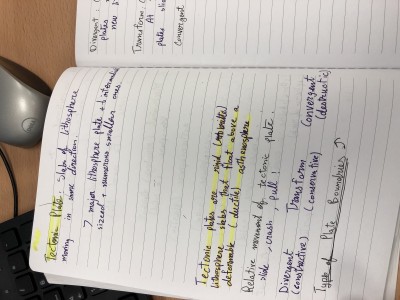 Divergent :
plates
new
Transform :
At
plates
convergent
Tectonic Plate : Slabs of lithosphere
moving in same direction.
7 major lithosphere plate + 6 intermediate
sized + numerous smaller ones.
Tectonic plates are rigid (brittle)
lithosphere slabs that float above a
deformable (ductile) asthenosphere
Relative movement of tectonic plate
slide, crash, pull !
Divergent Transform Convergent
(constructive) (conservative) (destructive)
Types of Plate Boundaries ↑